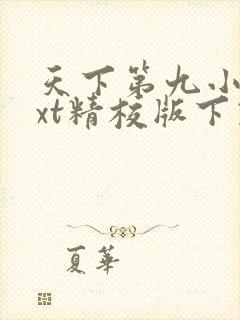 天下第九小
xt精校版下
夏華